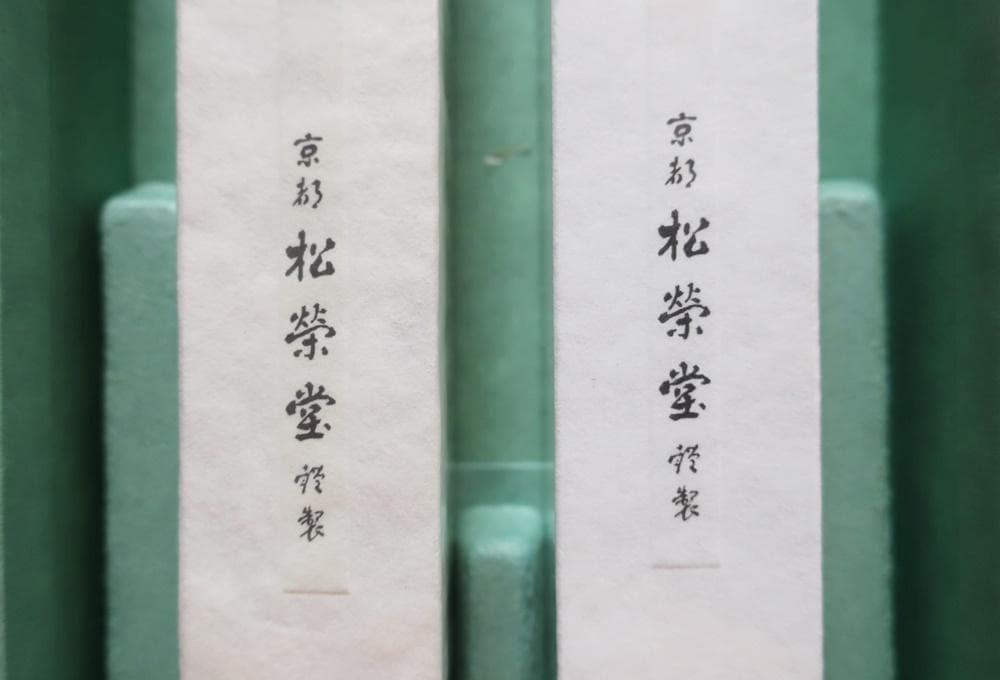 京都松榮堂謹製
京都松榮堂謹製